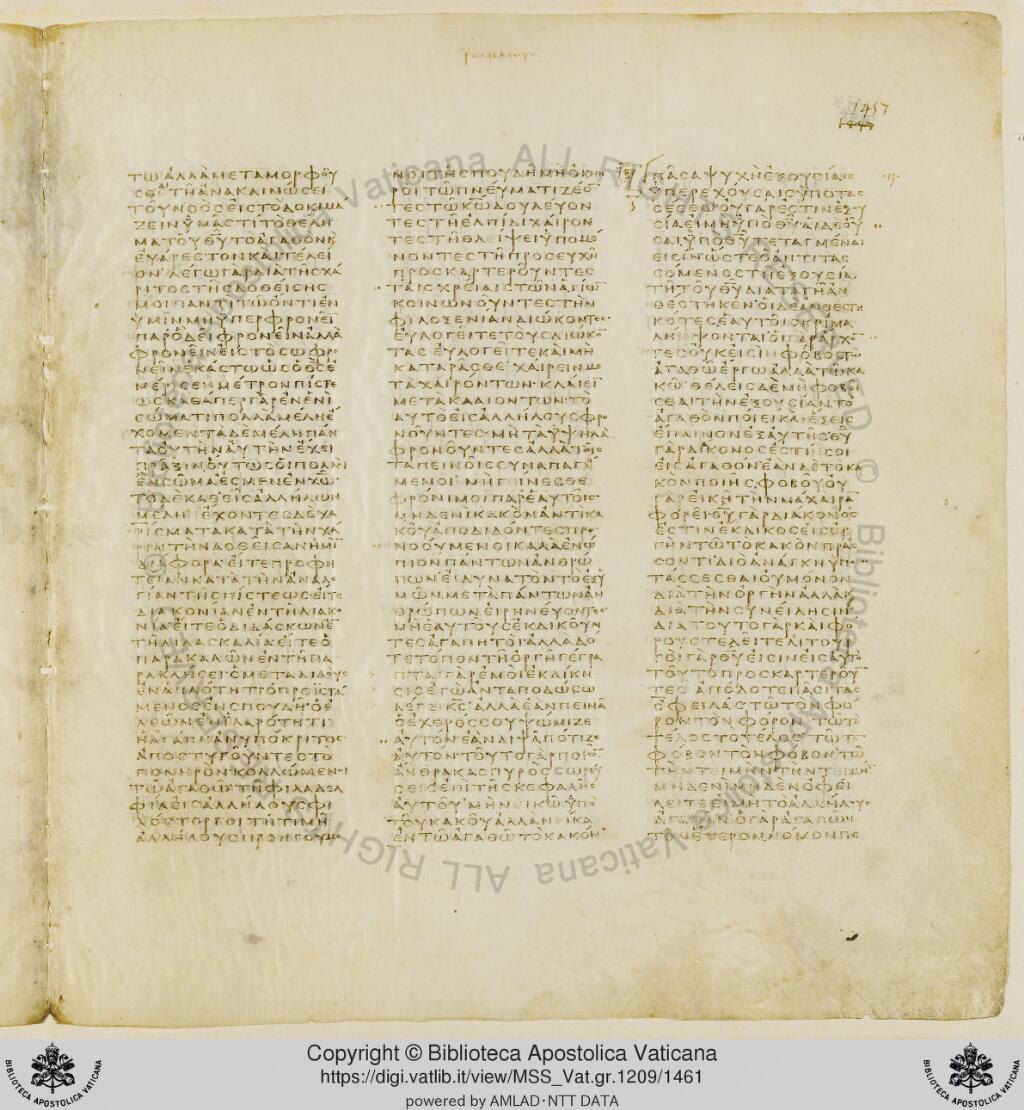 ΠΡΟΣ ΡΩΜΑΙΟΥΣ
1457
ΤΩ ΑΛΛΑ ΜΕΤΑΜΟΡΦΟΥ
ΣΘΕ ΤΗ ΑΝΑΚΑΙΝΩΣΕΙ
ΤΟΥ ΝΟΟΣ ΕΙΣ ΤΟ ΔΟΚΙΜΑ
ΖΕΙΝ ΥΜΑΣ ΤΙ ΤΟ ΘΕΛΗ
ΜΑ ΤΟΥ ΘΥ ΤΟ ΑΓΑΘΟΝ Κ
ΕΥΑΡΕΣΤΟΝ ΚΑΙ ΤΕΛΕΙ
ΟΝ ΛΕΓΩ ΓΑΡ ΔΙΑ ΤΗΣ ΧΑ
ΡΙΤΟΣ ΤΗΣ ΔΟΘΕΙΣΗΣ
ΜΟΙ ΠΑΝΤΙ ΤΩ ΟΝΤΙ ΕΝ
ΥΜΙΝ ΜΗ ΥΠΕΡΦΡΟΝΕΙ
ΠΑΡ Ο ΔΕΙ ΦΡΟΝΕΙΝ ΑΛΛΑ
ΦΡΟΝΕΙΝ ΕΙΣ ΤΟ ΣΩΦΡΟ
ΝΕΙΝ ΕΚΑΣΤΩ ΩΣ Ο ΘΣ Ε
ΜΕΡΙΣΕΝ ΜΕΤΡΟΝ ΠΙΣΤΕ
ΩΣ ΚΑΘΑΠΕΡ ΓΑΡ ΕΝ ΕΝΙ
ΣΩΜΑΤΙ ΠΟΛΛΑ ΜΕΛΗ Ε
ΧΟΜΕΝ ΤΑ ΔΕ ΜΕΛΗ ΠΑΝ
ΤΑ ΟΥ ΤΗΝ ΑΥΤΗΝ ΕΧΕΙ
ΠΡΑΞΙΝ ΟΥΤΩΣ ΟΙ ΠΟΛΛΟΙ
ΕΝ ΣΩΜΑ ΕΣΜΕΝ ΕΝ ΧΩ
ΤΟ ΔΕ ΚΑΘ ΕΙΣ ΑΛΛΗΛΩΝ
ΜΕΛΗ ΕΧΟΝΤΕΣ ΔΕ ΧΑ
ΡΙΣΜΑΤΑ ΚΑΤΑ ΤΗΝ ΧΑ
ΡΙΝ ΤΗΝ ΔΟΘΕΙΣΑΝ ΗΜΙ
ΔΙΑΦΟΡΑ ΕΙΤΕ ΠΡΟΦΗ
ΤΕΙΑΝ ΚΑΤΑ ΤΗΝ ΑΝΑΛΟ
ΓΙΑΝ ΤΗΣ ΠΙΣΤΕΩΣ ΕΙΤΕ
ΔΙΑΚΟΝΙΑΝ ΕΝ ΤΗ ΔΙΑΚΟ
ΝΙΑ ΕΙΤΕ Ο ΔΙΔΑΣΚΩΝ Ε
ΤΗ ΔΙΔΑΣΚΑΛΙΑ ΕΙΤΕ Ο
ΠΑΡΑΚΑΛΩΝ ΕΝ ΤΗ ΠΑ
ΡΑΚΛΗΣΕΙ Ο ΜΕΤΑΔΙΔΟΥΣ
ΕΝ ΑΠΛΟΤΗΤΙ Ο ΠΡΟΙΣΤΑ
ΜΕΝΟΣ ΕΝ ΣΠΟΥΔΗ Ο Ε
ΛΕΩΝ ΕΝ ΙΛΑΡΟΤΗΤΙ
Η ΑΓΑΠΗ ΑΝΥΠΟΚΡΙΤΟΣ
ΑΠΟΣΤΥΓΟΥΝΤΕΣ ΤΟ
ΠΟΝΗΡΟΝ ΚΟΛΛΩΜΕΝΟΙ
ΤΩ ΑΓΑΘΩ ΤΗ ΦΙΛΑΔΕΛ
ΦΙΑ ΕΙΣ ΑΛΛΗΛΟΥΣ ΦΙ
ΛΟΣΤΟΡΓΟΙ ΤΗ ΤΙΜΗ
ΑΛΛΗΛΟΥΣ ΠΡΟΗΓΟΥΜΕ
ΝΟΙ ΤΗ ΣΠΟΥΔΗ ΜΗ ΟΚΝΗ
ΡΟΙ ΤΩ ΠΝΕΥΜΑΤΙ ΖΕΟ
ΤΕΣ ΤΩ ΚΩ ΔΟΥΛΕΥΟΝ
ΤΕΣ ΤΗ ΕΛΠΙΔΙ ΧΑΙΡΟΝ
ΤΕΣ ΤΗ ΘΛΕΙΨΕΙ ΥΠΟΜΕ
ΝΟΝΤΕΣ ΤΗ ΠΡΟΣΕΥΧΗ
ΠΡΟΣΚΑΡΤΕΡΟΥΝΤΕΣ
ΤΑΙΣ ΧΡΕΙΑΙΣ ΤΩΝ ΑΓΙΩ
ΚΟΙΝΩΝΟΥΝΤΕΣ ΤΗΝ
ΦΙΛΟΞΕΝΙΑΝ ΔΙΩΚΟΝΤΕΣ
ΕΥΛΟΓΕΙΤΕ ΤΟΥΣ ΔΙΩΚΟ
ΤΑΣ ΕΥΛΟΓΕΙΤΕ ΚΑΙ ΜΗ
ΚΑΤΑΡΑΣΘΕ ΧΑΙΡΕΙΝ ΜΕ
ΤΑ ΧΑΙΡΟΝΤΩΝ ΚΛΑΙΕΙ
ΜΕΤΑ ΚΛΑΙΟΝΤΩΝ ΤΟ
ΑΥΤΟ ΕΙΣ ΑΛΛΗΛΟΥΣ ΦΡΟ
ΝΟΥΝΤΕΣ ΜΗ ΤΑ ΥΨΗΛΑ
ΦΡΟΝΟΥΝΤΕΣ ΑΛΛΑ ΤΟΙΣ
ΤΑΠΕΙΝΟΙΣ ΣΥΝΑΠΑΓΟ
ΜΕΝΟΙ ΜΗ ΓΙΝΕΣΘΕ
ΦΡΟΝΙΜΟΙ ΠΑΡ ΕΑΥΤΟΙΣ
ΜΗΔΕΝΙ ΚΑΚΟΝ ΑΝΤΙ ΚΑ
ΚΟΥ ΑΠΟΔΙΔΟΝΤΕΣ ΠΡΟ
ΝΟΟΥΜΕΝΟΙ ΚΑΛΑ ΕΝΩ
ΠΙΟΝ ΠΑΝΤΩΝ ΑΝΘΡΩ
ΠΩΝ ΕΙ ΔΥΝΑΤΟΝ ΤΟ ΕΞ Υ
ΜΩΝ ΜΕΤΑ ΠΑΝΤΩΝ ΑΝ
ΘΡΩΠΩΝ ΕΙΡΗΝΕΥΟΝΤΕΣ
ΜΗ ΕΑΥΤΟΥΣ ΕΚΔΙΚΟΥΝ
ΤΕΣ ΑΓΑΠΗΤΟΙ ΑΛΛΑ ΔΟ
ΤΕ ΤΟΠΟΝ ΤΗ ΟΡΓΗ ΓΕΓΡΑ
ΠΤΑΙ ΓΑΡ ΕΜΟΙ ΕΚΔΙΚΗ
ΣΙΣ ΕΓΩ ΑΝΤΑΠΟΔΩΣΩ
ΛΕΓΕΙ ΚΣ ΑΛΛΑ ΕΑΝ ΠΕΙΝΑ
Ο ΕΧΘΡΟΣ ΣΟΥ ΨΩΜΙΖΕ
ΑΥΤΟΝ ΕΑΝ ΔΙΨΑ ΠΟΤΙΖΕ
ΑΥΤΟΝ ΤΟΥΤΟ ΓΑΡ ΠΟΙΩ
ΑΝΘΡΑΚΑΣ ΠΥΡΟΣ ΣΩΡΕΥ
ΣΕΙΣ ΕΠΙ ΤΗΣ ΚΕΦΑΛΗΣ
ΑΥΤΟΥ ΜΗ ΝΕΙΚΩ ΥΠΟ
ΤΟΥ ΚΑΚΟΥ ΑΛΛΑ ΝΕΙΚΑ
ΕΝ ΤΩ ΑΓΑΘΩ ΤΟ ΚΑΚΟΝ
ΠΑΣΑ ΨΥΧΗ ΕΞΟΥΣΙΑΙΣ
ΥΠΕΡΕΧΟΥΣΑΙΣ ΥΠΟΤΑΣ
ΣΕΣΘΩ ΟΥ ΓΑΡ ΕΣΤΙΝ ΕΞΟΥ
ΣΙΑ ΕΙ ΜΗ ΥΠΟ ΘΥ ΑΙ ΔΕ ΟΥ
ΣΑΙ ΥΠΟ ΘΥ ΤΕΤΑΓΜΕΝΑΙ
ΕΙΣΙΝ ΩΣΤΕ Ο ΑΝΤΙΤΑΣ
ΣΟΜΕΝΟΣ ΤΗ ΕΞΟΥΣΙΑ
ΤΗ ΤΟΥ ΘΥ ΔΙΑΤΑΓΗ ΑΝ
ΘΕΣΤΗΚΕΝ ΟΙ ΔΕ ΑΝΘΕΣΤΗ
ΚΟΤΕΣ ΕΑΥΤΟΙΣ ΚΡΙΜΑ
ΛΗΜΨΟΝΤΑΙ ΟΙ ΓΑΡ ΑΡΧΟ
ΤΕΣ ΟΥΚ ΕΙΣΙΝ ΦΟΒΟΣ ΤΩ
ΑΓΑΘΩ ΕΡΓΩ ΑΛΛΑ ΤΩ ΚΑ
ΚΩ ΘΕΛΕΙΣ ΔΕ ΜΗ ΦΟΒΕΙ
ΣΘΑΙ ΤΗΝ ΕΞΟΥΣΙΑΝ ΤΟ
ΑΓΑΘΟΝ ΠΟΙΕΙ ΚΑΙ ΕΞΕΙΣ
ΕΠΑΙΝΟΝ ΕΞ ΑΥΤΗΣ ΘΥ
ΓΑΡ ΔΙΑΚΟΝΟΣ ΕΣΤΙ ΣΟΙ
ΕΙΣ ΑΓΑΘΟΝ ΕΑΝ ΔΕ ΤΟ ΚΑ
ΚΟΝ ΠΟΙΗΣ ΦΟΒΟΥ ΟΥ
ΓΑΡ ΕΙΚΗ ΤΗΝ ΜΑΧΑΙΡΑ
ΦΟΡΕΙ ΘΥ ΓΑΡ ΔΙΑΚΟΝΟΣ
ΕΣΤΙΝ ΕΚΔΙΚΟΣ ΕΙΣ ΟΡ
ΓΗΝ ΤΩ ΤΟ ΚΑΚΟΝ ΠΡΑΣ
ΣΟΝΤΙ ΔΙΟ ΑΝΑΓΚΗ ΥΠΟ
ΤΑΣΣΕΣΘΑΙ ΟΥ ΜΟΝΟΝ
ΔΙΑ ΤΗΝ ΟΡΓΗΝ ΑΛΛΑ Κ
ΔΙΑ ΤΗΝ ΣΥΝΕΙΔΗΣΙΝ
ΔΙΑ ΤΟΥΤΟ ΓΑΡ ΚΑΙ ΦΟ
ΡΟΥΣ ΤΕΛΕΙΤΕ ΛΙΤΟΥΡ
ΓΟΙ ΓΑΡ ΘΥ ΕΙΣΙΝ ΕΙΣ ΑΥΤΟ
ΤΟΥΤΟ ΠΡΟΣΚΑΡΤΕΡΟΥ
ΤΕΣ ΑΠΟΔΟΤΕ ΠΑΣΙ ΤΑΣ
ΟΦΕΙΛΑΣ ΤΩ ΤΟΝ ΦΟ
ΡΟΝ ΤΟΝ ΦΟΡΟΝ ΤΩ ΤΟ
ΤΕΛΟΣ ΤΟ ΤΕΛΟΣ ΤΩ ΤΟ
ΦΟΒΟΝ ΤΟΝ ΦΟΒΟΝ ΤΩ
ΤΗΝ ΤΕΙΜΗΝ ΤΗΝ ΤΕΙΜΗ
ΜΗΔΕΝΙ ΜΗΔΕΝ ΟΦΕΙ
ΛΕΙΤΕ ΕΙ ΜΗ ΤΟ ΑΛΛΗΛΟΥΣ
ΑΓΑΠΑΝ Ο ΓΑΡ ΑΓΑΠΩΝ
ΤΟΝ ΕΤΕΡΟΝ ΝΟΜΟΝ ΠΕ
Copyright © Biblioteca Apostolica Vaticana
https://digi.vatlib.it/view/MSS_Vat.gr.1209/1461
powered by AMLAD·NTT DATA